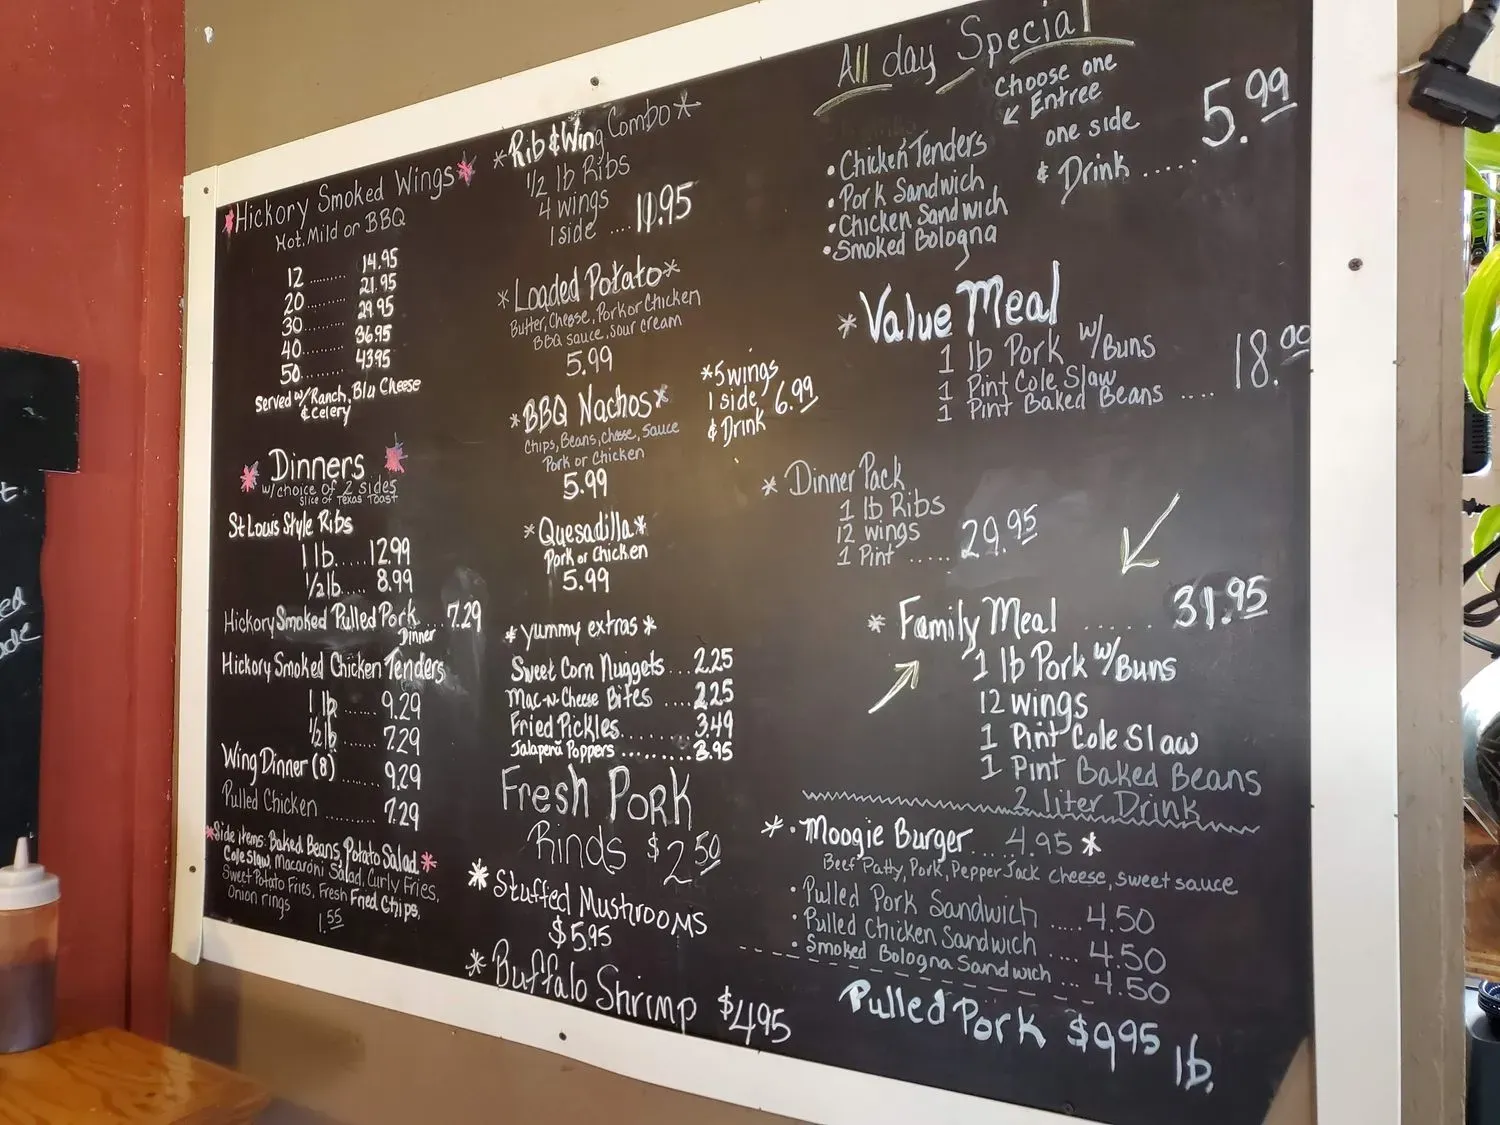 *Hickory Smoked Wings*
Hot, Mild or BBQ
12 ........ 14.95
20 ........ 21.95
30 ........ 29.95
40 ........ 36.95
50 ........ 43.95
Served w/Ranch, Blu Cheese
& Celery
* Dinners *
w/choice of 2 sides
slice of Texas Toast
St Louis Style Ribs
1 lb ..... 12.99
1/2 lb ..... 8.99
Hickory Smoked Pulled Pork ... 7.29
Dinner
Hickory Smoked Chicken Tenders
1 lb ....... 9.29
1/2 lb ...... 7.29
Wing Dinner (8) ...... 9.29
Pulled Chicken ......... 7.29
*Side items: Baked Beans, Potato Salad *
Coleslaw, Macaroni Salad, Curly Fries,
Sweet Potato Fries, Fresh Fried Chips,
Onion rings
1.55
*Rib & Wing Combo*
1/2 lb Ribs
4 wings
1 side .... 11.95
*Loaded Potato*
Butter, Cheese, Pork or Chicken
BBQ sauce, sour cream
5.99
*BBQ Nachos*
Chips, Beans, cheese, Sauce
Pork or Chicken
5.99
*5 wings
1 side
& Drink 6.99
*Quesadilla*
Pork or Chicken
5.99
* yummy extras *
Sweet Corn Nuggets ... 2.25
Mac-n-Cheese Bites .... 2.25
Fried Pickles ........ 3.49
Jalapeno Poppers ......... 3.95
Fresh Pork
Rinds $2.50
* Stuffed Mushrooms
$5.95
* Buffalo Shrimp $4.95
All day Special
Choose one
Entree
one side
& Drink ..... 5.99
• Chicken Tenders
• Pork Sandwich
• Chicken Sandwich
• Smoked Bologna
* Value Meal
1 lb Pork w/Buns
1 Pint Cole Slaw
1 Pint Baked Beans .... 18.99
* Dinner Pack
1 lb Ribs
12 wings
1 Pint ...... 29.95
* Family Meal ...... 31.95
1 lb Pork w/Buns
12 wings
1 Pint Cole Slaw
1 Pint Baked Beans
2 liter Drink
* • Moogie Burger .... 4.95 *
Beef Patty, Pork, Pepper Jack cheese, sweet sauce
• Pulled Pork Sandwich ..... 4.50
• Pulled Chicken Sandwich .... 4.50
• Smoked Bologna Sandwich ... 4.50
Pulled Pork $9.95 lb.